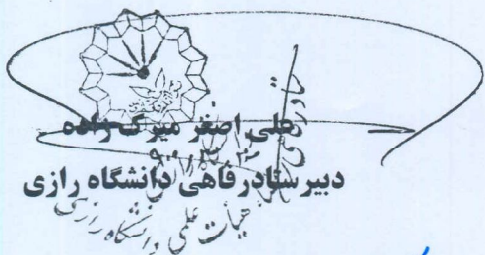 علی اصغر میرک زاده
دبیر ستاد رفاهی دانشگاه رازی
هیأت علمی دانشگاه رازی